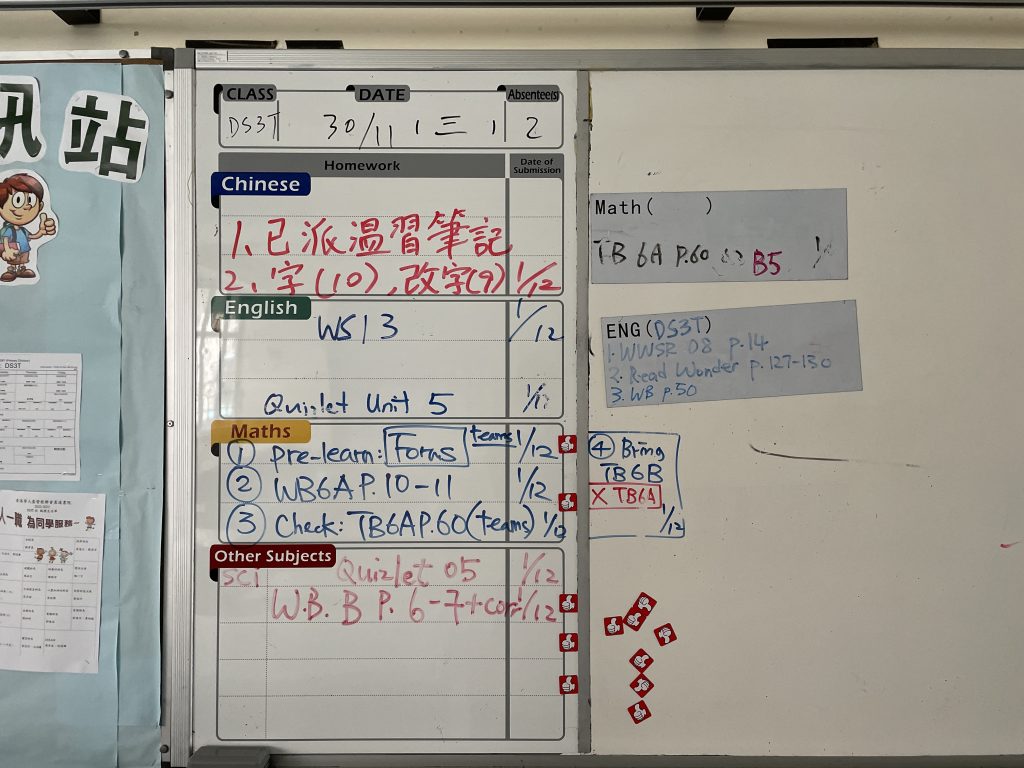 訊站
CLASS DATE Absentee(s)
DS3T 30/11 (三) 2
Homework Date of Submission
Chinese
1. 已派溫習筆記
2. 字(10), 改字(9) 1/12
English
WS13 1/12
Quizlet Unit 5
Maths
① pre-learn: Forms teams 1/12
② WB6A P.10-11 1/12
③ Check: TB6A P.60 (teams) 1/12
④ Bring
TB6B
X TB6A
1/12
Other Subjects
sci Quizlet 05 1/12
W.B. B P. 6-7 + corr 1/12
Math( )
TB 6A P.60 B5
ENG(DS3T)
1. WWSR 08 p.14
2. Read Wonder p.127-130
3. WB p.50
DS3T
人一職 為同學服務